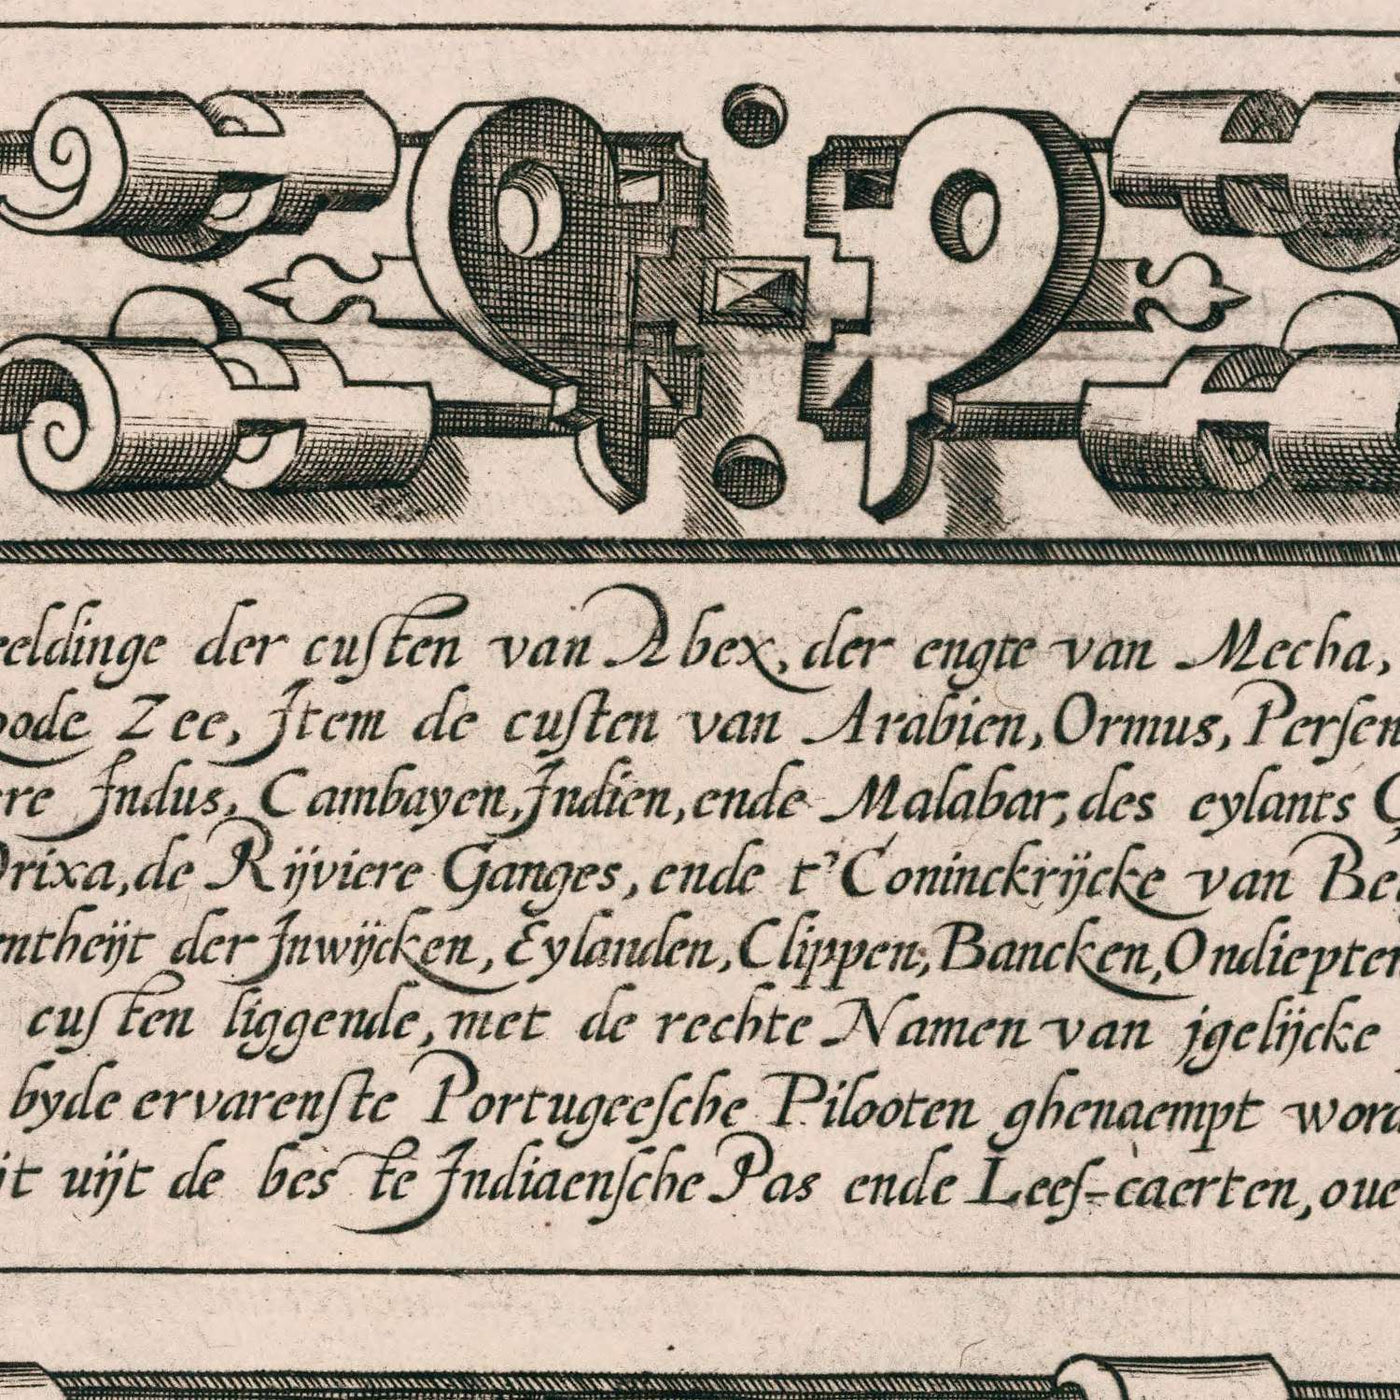 eeldinge der cuſten van Abex, der engte van Mecha,
oode Zee, Item de cuſten van Arabien, Ormus, Perſen
ere Indus, Cambayen, Indien, ende Malabar, des eylants
Orixa, de Rijviere Ganges, ende t'Coninckrijcke van Be
ntheijt der Inwijcken, Eylanden, Clippen, Bancken, Ondiepten
cuſten liggende, met de rechte Namen van jgelijcke
byde ervarenſte Portugeeſche Pilooten ghenaempt word
it uijt de beste Indiaenſche Pas ende Leeſ-caerten, oue